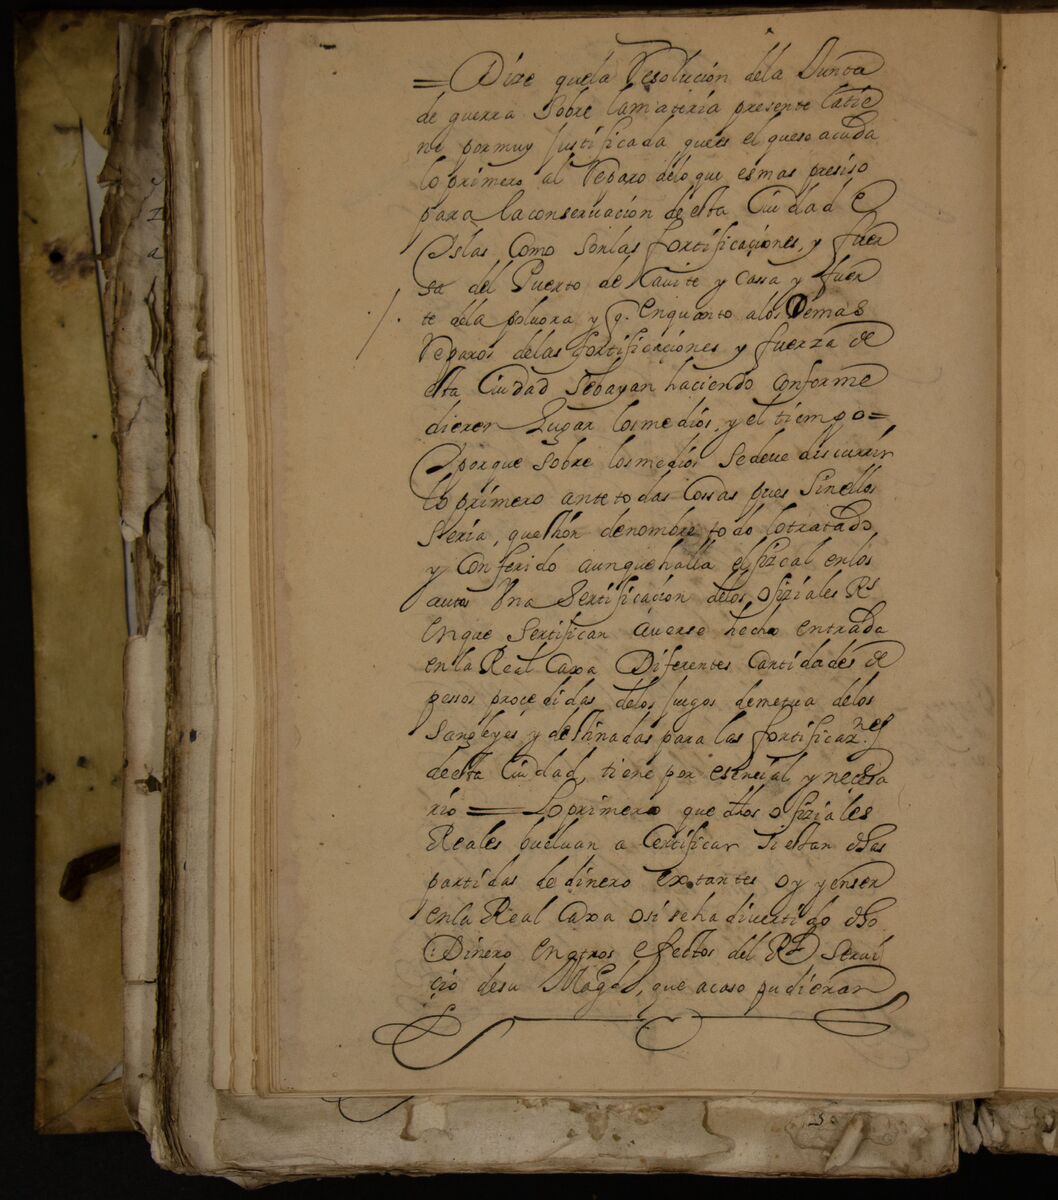 = Dize que la Resolucion dela Junta
de guerra sobre lamateria presente latie
ne por muy justificada ques el queso acuda
lo primero al Reparo delo que es mas presiso
para la conseruacion de esta Ciudad e
Yslas Como son las fortificaçiones, y fuer
sa del Puerto de Cauite y Cassa y fuer
te dela poluora y q. en quanto a los Demas
Reparos delas fortificaçiones y fuerza de
esta Ciudad se bayan haciendo conforme
dieren Lugar los medios, y el tiempo =
Y porque sobre los medios se deue discurrir
lo primero ante todas Cossas pues sin ellos
seria, quedion de nombre todo lo tratado
y Conferido aunque halla el fiscal en los
autos Vna Sertificaçion delos ofiziales Rs
en que Sertifican auerse hecho entrada
en la Real Caxa Diferentes Cantidades de
pessos procedidas delos juegos demetua delos
Sangleyes y destinadas para las fortificaz.nes
de esta Ciudad, tiene por esencial y necesa
rio = Lo primero que dhos ofiziales
Reales bueluan a Certificar si estan dhas
partidas de dinero extantes oy y en ser
en la Real Caxa o si se ha diuertido dho
Dinero en otros efectos del Rl Serui
çio de su Magd, que acaso pudieran